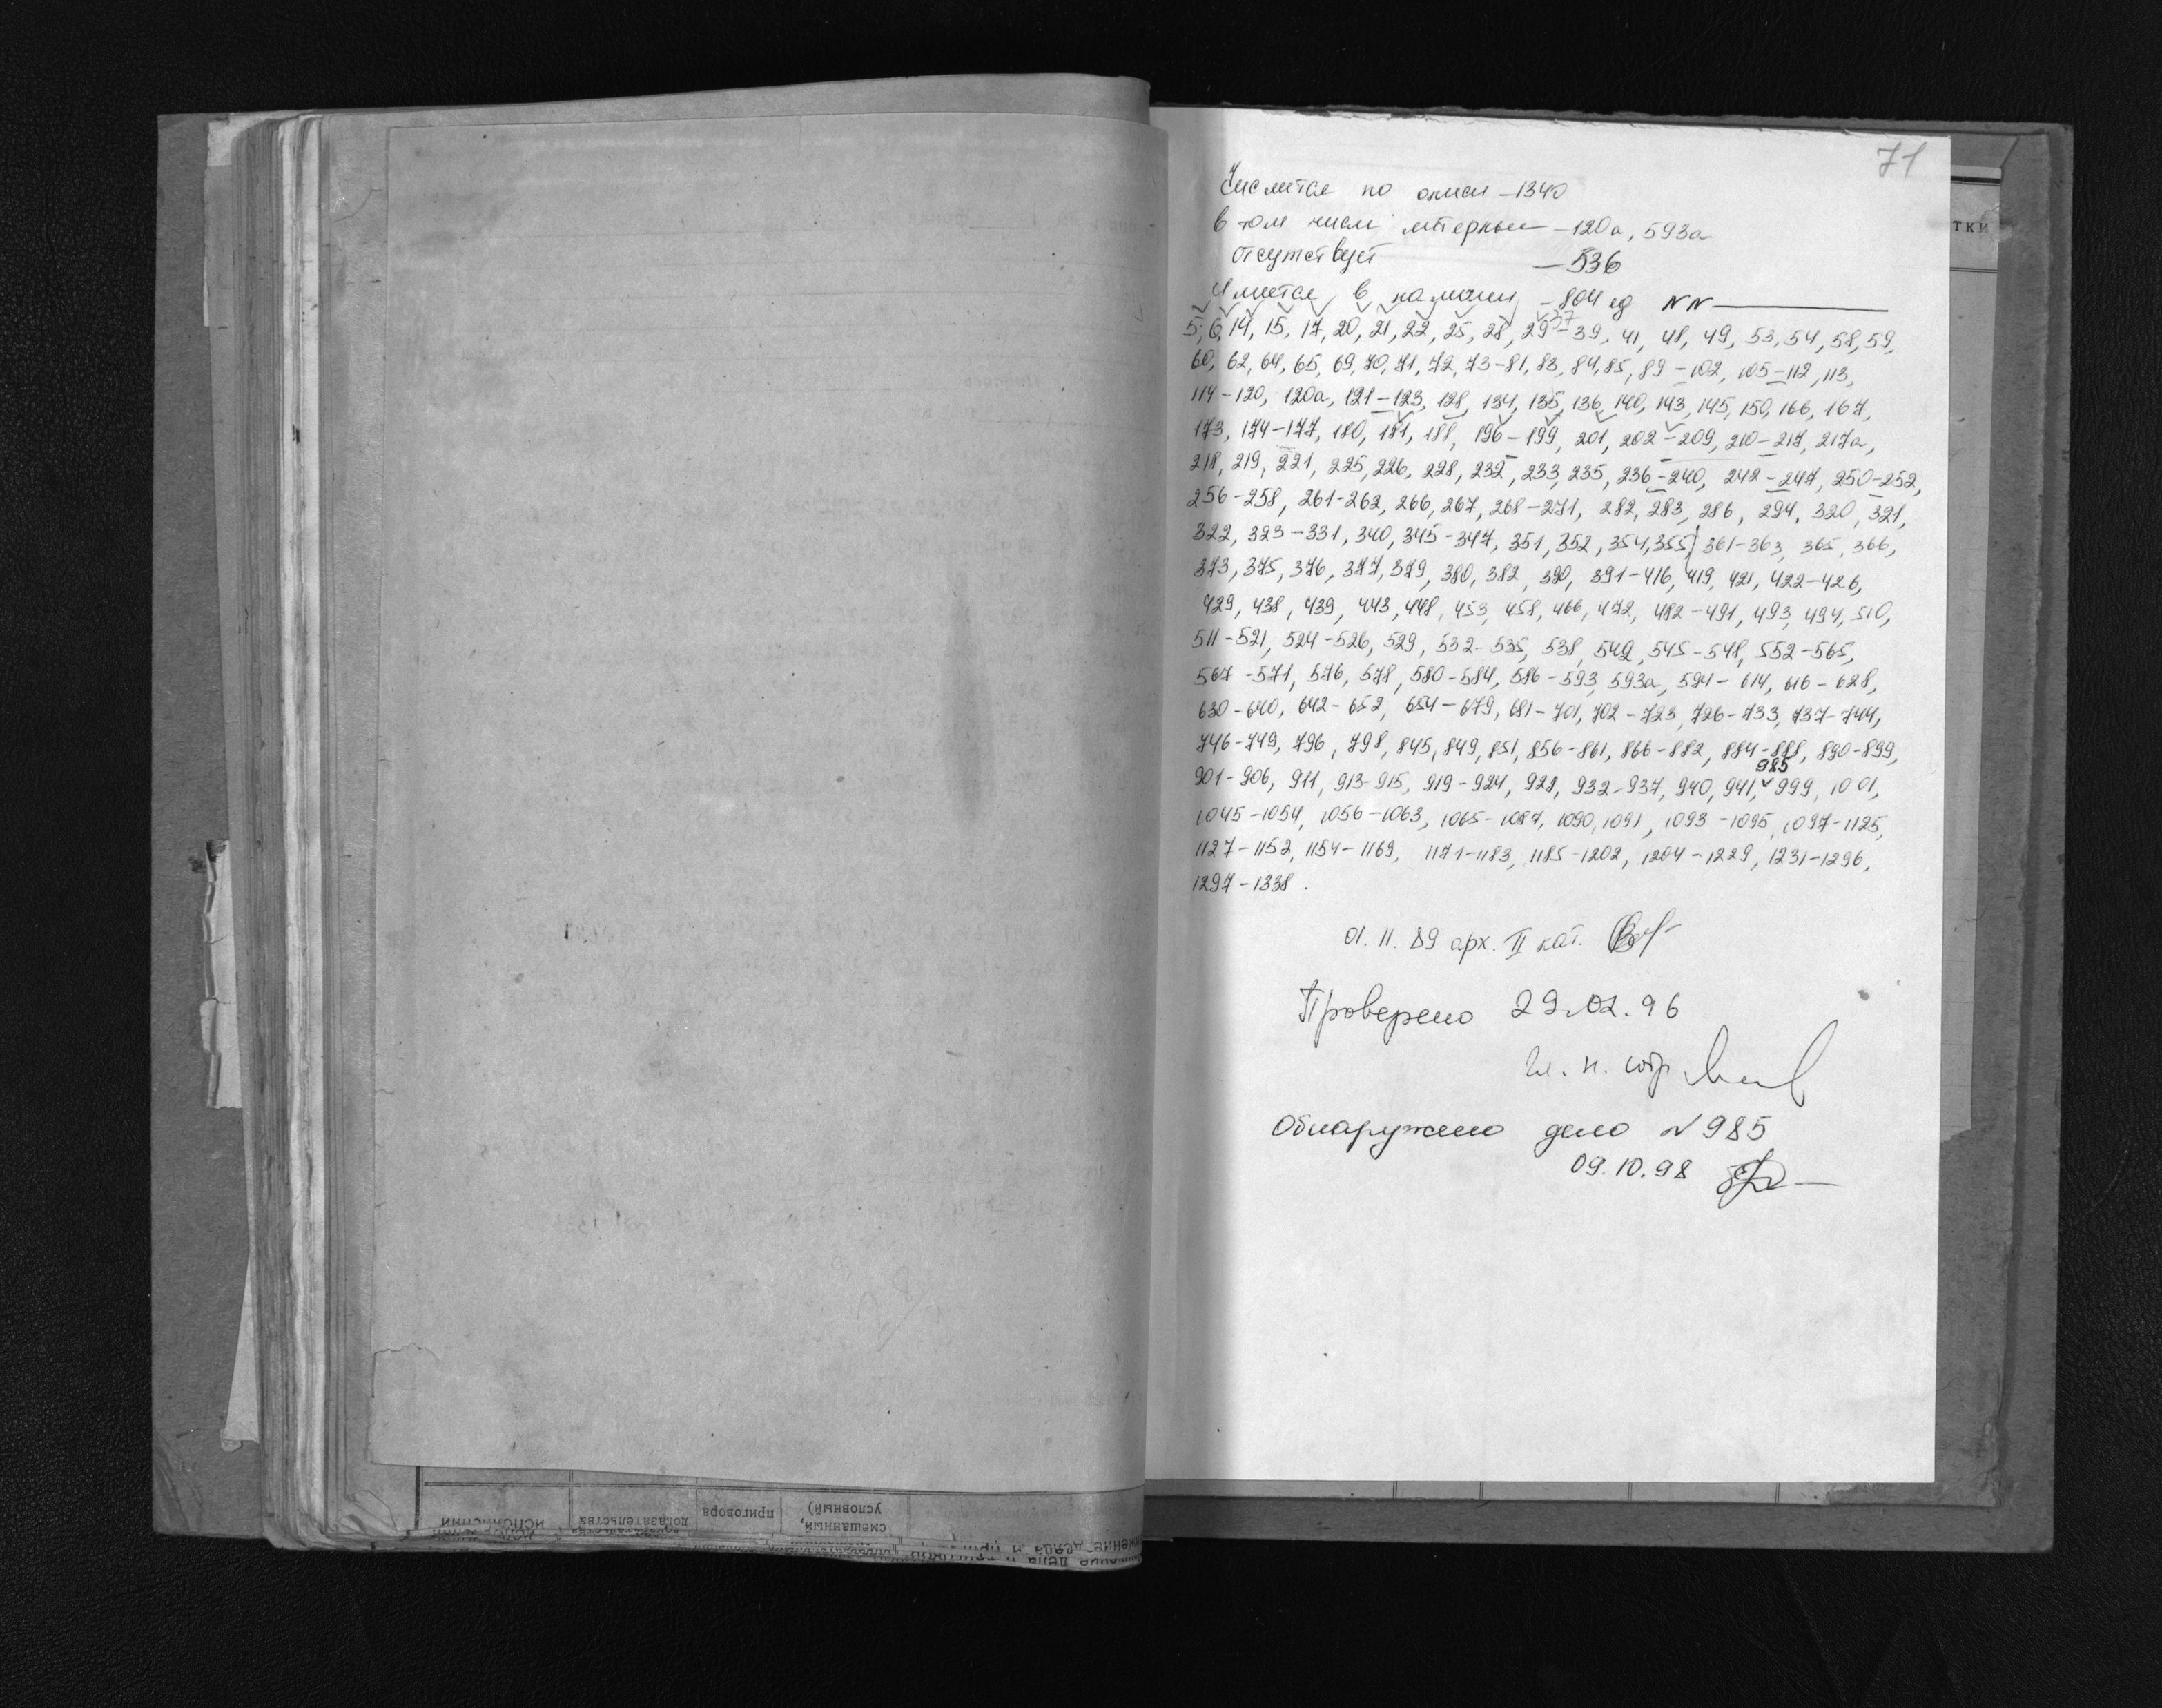 71
Числится по описи – 1340
в том числе литерные – 120а, 593а
отсутствует – 536
Имеется в наличии – 804 ед NN
5, 6, 14, 15, 17, 20, 21, 22, 25, 28, 29–39, 41, 48, 49, 53, 54, 58, 59,
37
60, 62, 64, 65, 69, 70, 71, 72, 73–81, 83, 84, 85, 89–102, 105–112, 113,
114–120, 120а, 121–123, 128, 134, 135, 136, 140, 143, 145, 150, 166, 167,
173, 174–177, 180, 181, 188, 196–199, 201, 202–209, 210–217, 217а,
218, 219, 221, 225, 226, 228, 232, 233, 235, 236–240, 242–247, 250–252,
256–258, 261–262, 266, 267, 268–271, 282, 283, 286, 294, 320, 321,
322, 323–331, 340, 345–347, 351, 352, 354, 355, 361–363, 365, 366,
373, 375, 376, 377, 379, 380, 382, 390, 391–416, 419, 421, 422–426,
429, 438, 439, 443, 448, 453, 458, 466, 472, 482–491, 493, 494, 510,
511–521, 524–526, 529, 532–535, 538, 542, 545–548, 552–565,
567–571, 576, 578, 580–584, 586–593, 593а, 594–614, 616–628,
630–640, 642–652, 654–679, 681–701, 702–723, 726–733, 737–744,
746–749, 796, 798, 845, 849, 851, 856–861, 866–882, 884–888, 890–899,
985
901–906, 911, 913–915, 919–924, 928, 932–937, 940, 941, 999, 1001,
1045–1054, 1056–1063, 1065–1087, 1090, 1091, 1093–1095, 1097–1125,
1127–1152, 1154–1169, 1171–1183, 1185–1202, 1204–1229, 1231–1296,
1297–1338.
01.11.89 арх. II кат.
Проверено 29.02.96
Гл. н. сотр
Обнаружено дело N 985
09.10.98
тки
условный)
смешанный,
приговора
доказательства
исполнении